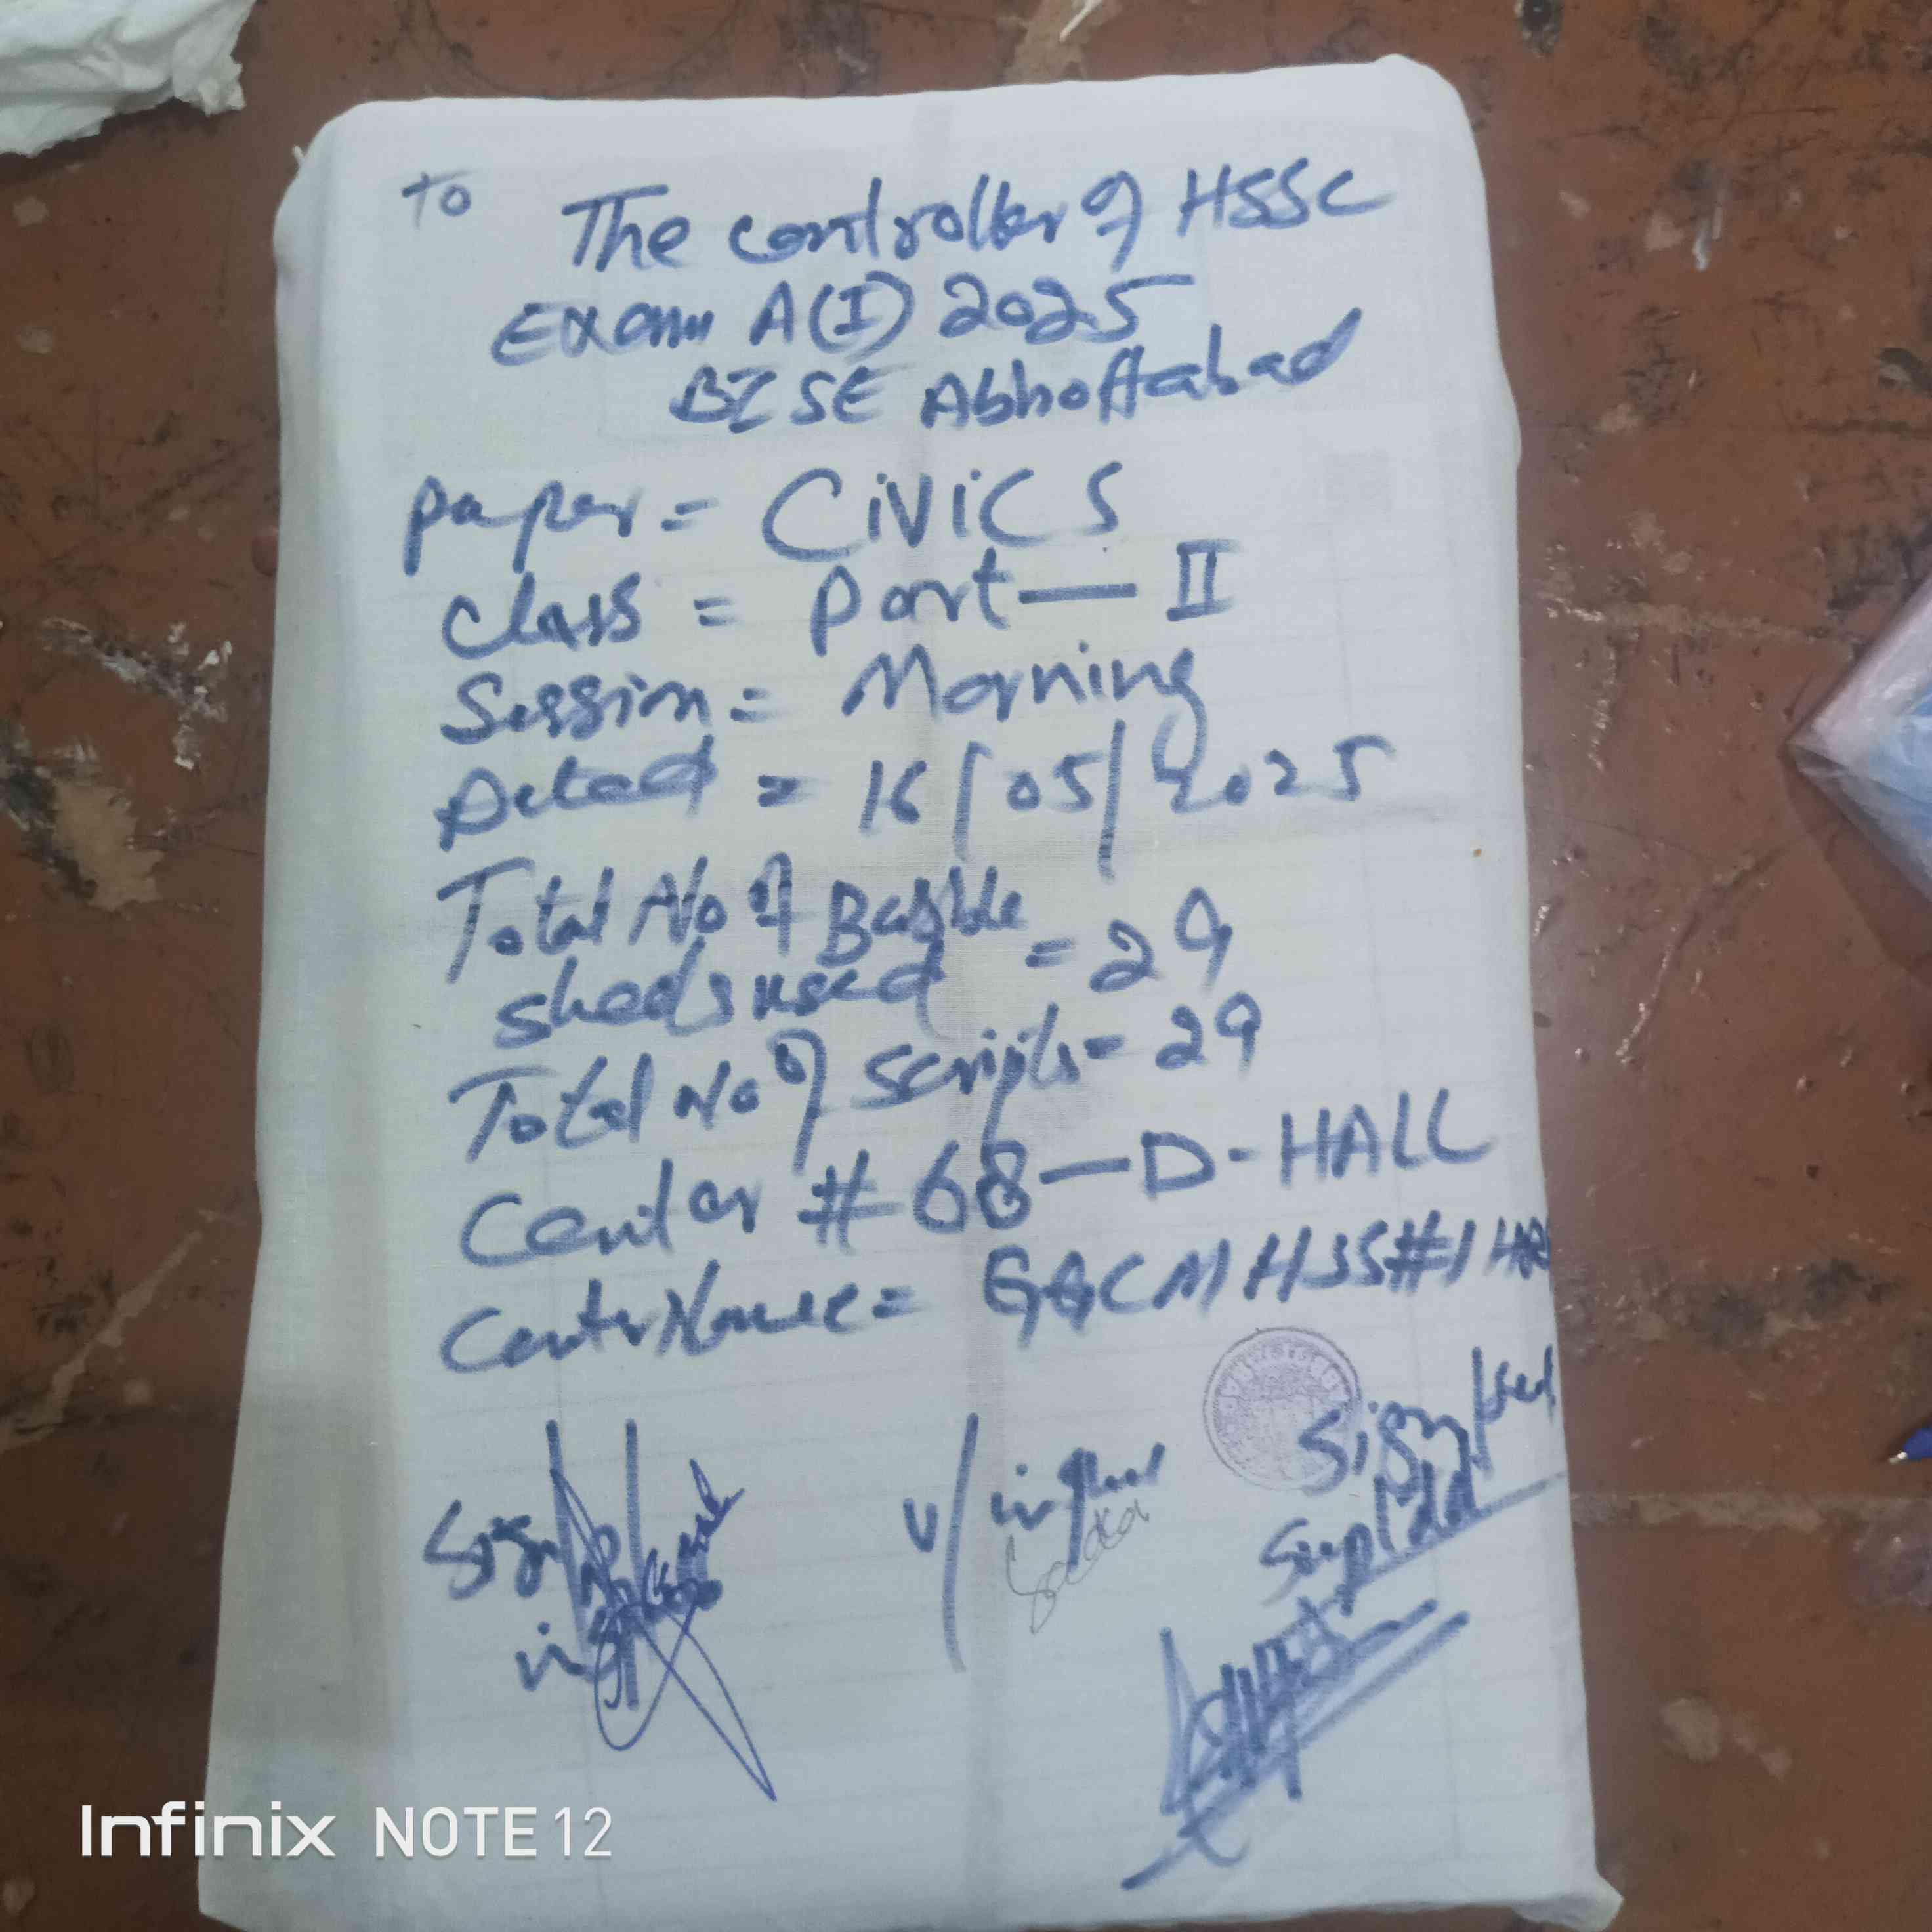 To
The controller of HSSC
Exam A(I) 2025
BISE Abbottabad
Paper = CiViCS
Class = Part — II
Session = Morning
Dated = 16/05/2025
Total No of Bubble
sheets used = 29
Total No of scripts = 29
Center # 68 — D-HALL
Center Name = GGCMHSS#1 HAR
Sign
V/
Sign
Infinix NOTE 12